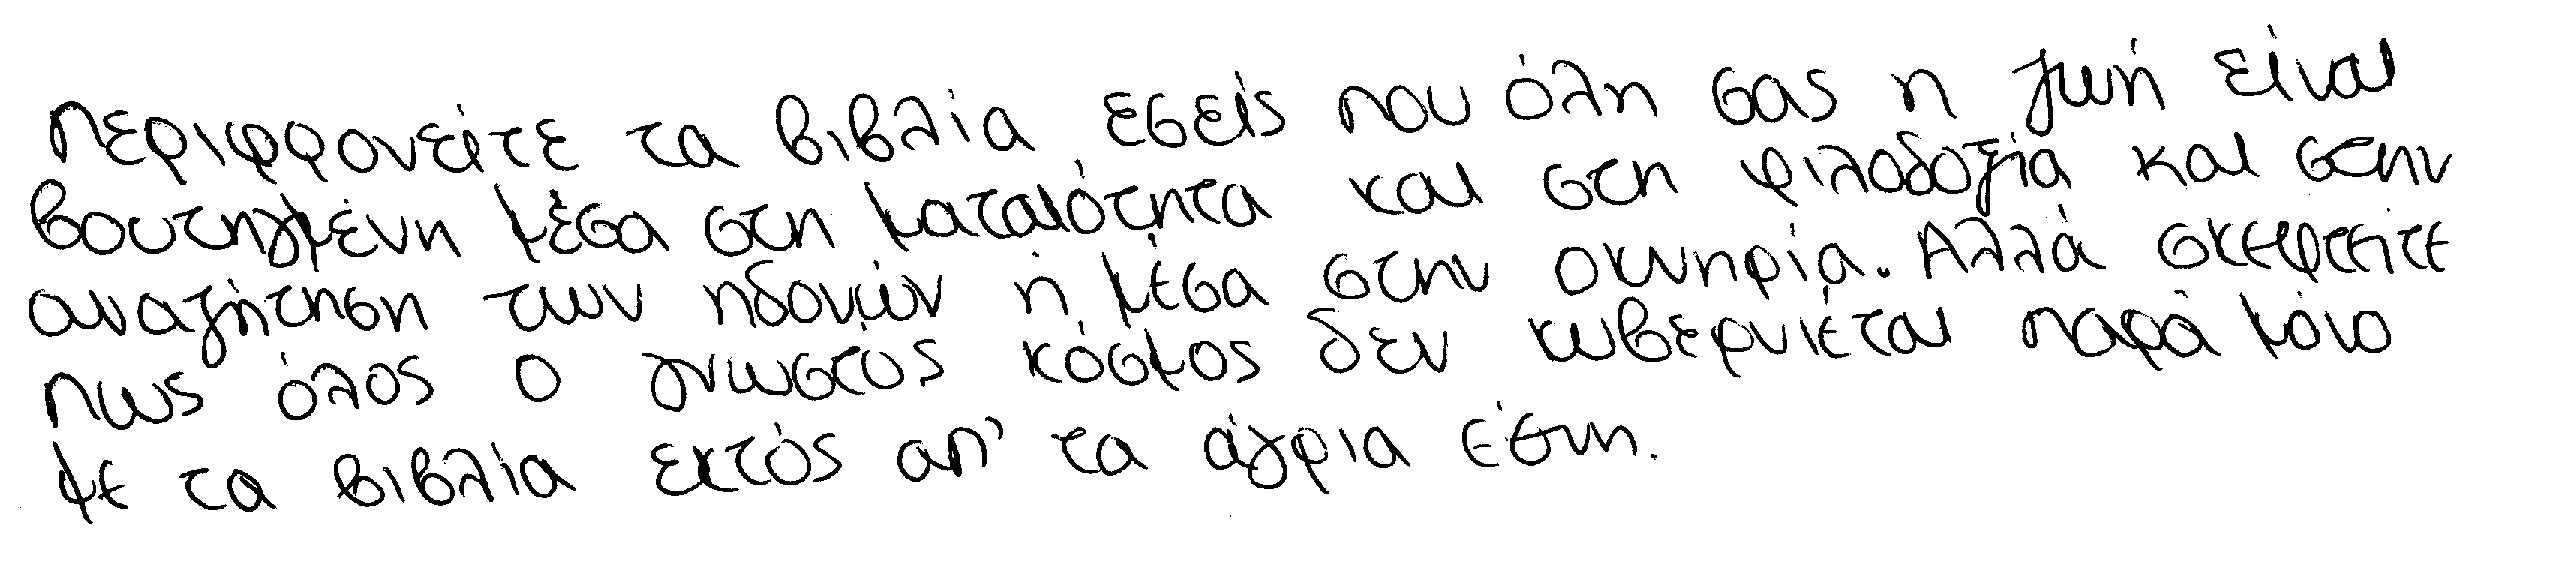 Περιφρονείτε τα βιβλία, εσείς που όλη σας η ζωή είναι
βουτηγμένη μέσα στη ματαιότητα και στη φιλοδοξία και στην
αναζήτηση των ηδονών ή μέσα στην οκνηρία. Αλλά σκεφτείτε
πως όλος ο γνωστός κόσμος δεν κυβερνιέται παρά μόνο
με τα βιβλία εκτός απ' τα άγρια έθνη.